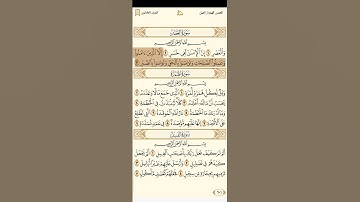 العصر، الهمزة، الفيل
الجزء الثلاثون
سُورَةُ العَصْرِ
بِسْمِ اللَّهِ الرَّحْمَٰنِ الرَّحِيمِ
وَالْعَصْرِ ١ إِنَّ الْإِنسَانَ لَفِي خُسْرٍ ٢ إِلَّا الَّذِينَ ءَامَنُوا
وَعَمِلُوا الصَّالِحَاتِ وَتَوَاصَوْا بِالْحَقِّ وَتَوَاصَوْا بِالصَّبْرِ ٣
سُورَةُ الهُمَزَةِ
بِسْمِ اللَّهِ الرَّحْمَٰنِ الرَّحِيمِ
وَيْلٌ لِّكُلِّ هُمَزَةٍ لُّمَزَةٍ ١ الَّذِي جَمَعَ مَالًا وَعَدَّدَهُ ٢
يَحْسَبُ أَنَّ مَالَهُ أَخْلَدَهُ ٣ كَلَّا لَيُنبَذَنَّ فِي الْحُطَمَةِ ٤
وَمَا أَدْرَاكَ مَا الْحُطَمَةُ ٥ نَارُ اللَّهِ الْمُوقَدَةُ ٦ الَّتِي تَطَّلِعُ
عَلَى الْأَفْئِدَةِ ٧ إِنَّهَا عَلَيْهِم مُّؤْصَدَةٌ ٨ فِي عَمَدٍ مُّمَدَّدَةٍ ٩
سُورَةُ الفِيلِ
بِسْمِ اللَّهِ الرَّحْمَٰنِ الرَّحِيمِ
أَلَمْ تَرَ كَيْفَ فَعَلَ رَبُّكَ بِأَصْحَابِ الْفِيلِ ١ أَلَمْ يَجْعَلْ
كَيْدَهُمْ فِي تَضْلِيلٍ ٢ وَأَرْسَلَ عَلَيْهِمْ طَيْرًا أَبَابِيلَ ٣
تَرْمِيهِم بِحِجَارَةٍ مِّن سِجِّيلٍ ٤ فَجَعَلَهُمْ كَعَصْفٍ مَّأْكُولٍ ٥
٦٠١